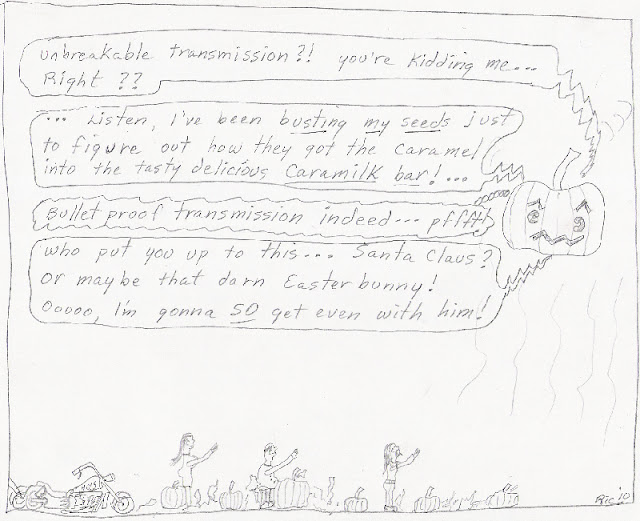 unbreakable transmission?! you're kidding me...
Right ??
... Listen, I've been busting my seeds just
to figure out how they got the caramel
into the tasty delicious Caramilk bar!...
Bulletproof transmission indeed... pffftt
who put you up to this... Santa Claus?
Or maybe that darn Easter bunny!
Ooooo, I'm gonna SO get even with him!
Ric '10